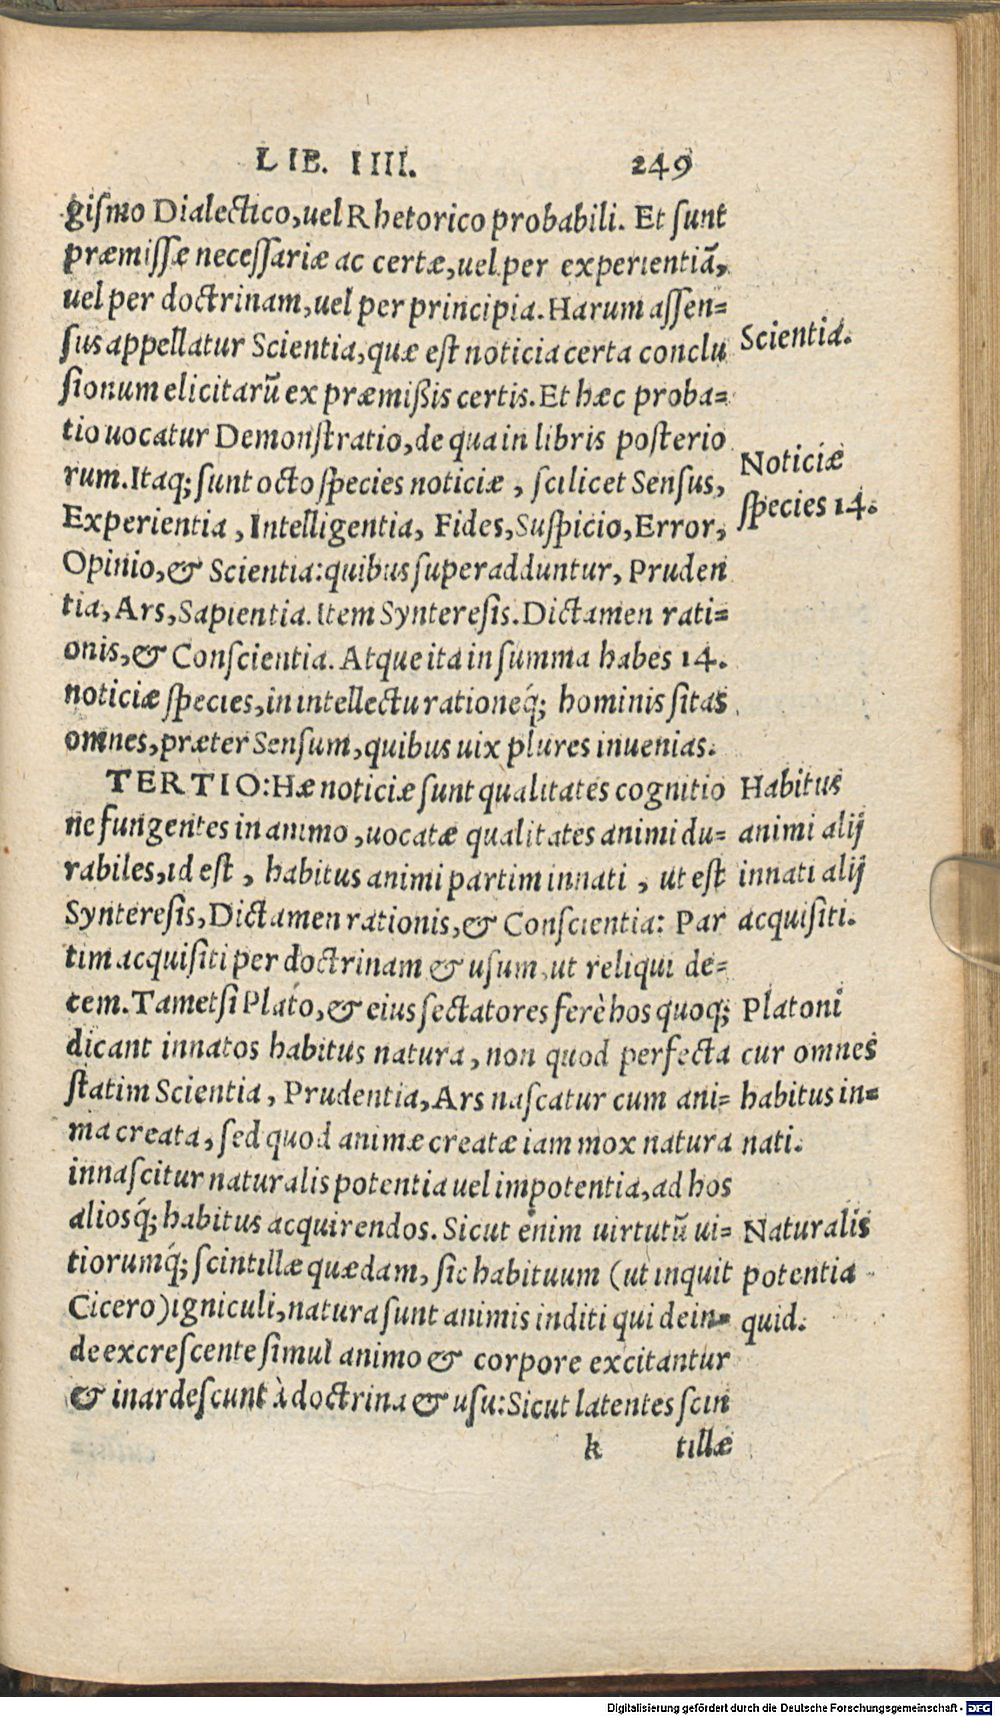 LIB. IIII. 249
giſmo Dialectico, uel Rhetorico probabili. Et ſunt
præmiſſæ neceſſariæ ac certæ, uel per experientiā,
uel per doctrinam, uel per principia. Harum aſſen=
ſus appellatur Scientia, quæ eſt noticia certa conclu
ſionum elicitarū ex præmißis certis. Et hæc proba=
tio uocatur Demonſtratio, de qua in libris poſterio
rum. Itaq; ſunt octo ſpecies noticiæ, ſcilicet Senſus,
Experientia, Intelligentia, Fides, Suſpicio, Error,
Opinio, & Scientia: quibus ſuperadduntur, Pruden
tia, Ars, Sapientia. Item Syntereſis. Dictamen rati=
onis, & Conſcientia. Atque ita in ſumma habes 14.
noticiæ ſpecies, in intellectu rationeq́; hominis ſitas
omnes, præter Senſum, quibus uix plures inuenias.
TERTIO: Hæ noticiæ ſunt qualitates cognitio
ne fungentes in animo, uocatæ qualitates animi du=
rabiles, id eſt, habitus animi partim innati, ut eſt
Syntereſis, Dictamen rationis, & Conſcientia: Par
tim acquiſiti per doctrinam & uſum, ut reliqui de=
cem. Tametſi Plato, & eius ſectatores ferè hos quoq;
dicant innatos habitus natura, non quod perfecta
ſtatim Scientia, Prudentia, Ars naſcatur cum ani=
ma creata, ſed quod animæ creatæ iam mox natura
innaſcitur naturalis potentia uel impotentia, ad hos
aliosq́; habitus acquirendos. Sicut enim uirtutū ui=
tiorumq́; ſcintillæ quædam, ſic habituum (ut inquit
Cicero) igniculi, natura ſunt animis inditi qui dein=
de excreſcente ſimul animo & corpore excitantur
& inardeſcunt à doctrina & uſu: Sicut latentes ſcin
k tillæ
Scientia.
Noticiæ
ſpecies 14.
Habitus
animi alij
innati alij
acquiſiti.
Platoni
cur omnes
habitus in=
nati.
Naturalis
potentia
quid.
Digitalisierung gefördert durch die Deutsche Forschungsgemeinschaft - DFG